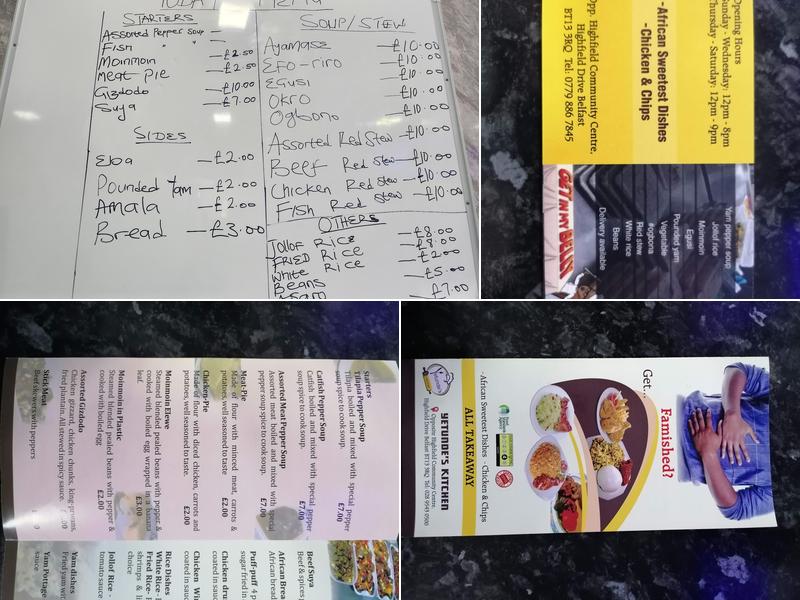 TODAY MENU
STARTERS
Assorted Pepper Soup —
Fish " " —
Moinmoin — £2.50
Meat Pie — £2.50
Gizdodo — £10.00
Suya — £7.00
SIDES
Eba — £2.00
Pounded Yam — £2.00
Amala — £2.00
Bread — £3.00
SOUP/STEW
Ayamase — £10.00
EFO-riro — £10.00
EGusi — £10.00
OKro — £10.00
Ogbono — £10.00
Assorted Red Stew — £10.00
Beef Red Stew — £10.00
Chicken Red Stew — £10.00
Fish Red Stew — £10.00
OTHERS
Jollof Rice — £8.00
FRIED Rice — £8.00
White Rice — £2.00
Beans — £5.00
£7.00
Opening Hours
Sunday - Wednesday: 12pm - 8pm
Thursday - Saturday: 12pm - 9pm
-African Sweetest Dishes
-Chicken & Chips
Opp. Highfield Community Centre,
Highfield Drive Belfast
BT13 3RQ Tel: 0779 886 7845
GET IN MY BELLY!
Yam pepper soup
Jollof rice
Moinmoin
Egusi
Pounded yam
Vegetable
#ogbona
Red stew
White rice
Beans
Delivery available
Starters
Tilapia Pepper Soup
Tilapia boiled and mixed with special pepper
spice to cook soup. £7.00
Catfish Pepper Soup
Catfish boiled and mixed with special pepper
spice to cook soup. £7.00
Assorted Meat Pepper Soup
Assorted meat boiled and mixed with special
pepper soup spice to cook soup. £7.00
Meat-Pie
Made of flour with minced meat, carrots &
potatoes, well seasoned to taste. £2.00
Chicken-Pie
Made of flour with diced chicken, carrots and
potatoes, well seasoned to taste. £2.00
Moinmoin Elewe
Steamed blended pealed beans with pepper &
cooked with boiled egg wrapped in a banana
leaf. £3.00
Moinmoin in Plastic
Steamed blended pealed beans with pepper &
cooked with boiled egg £2.00
Assorted Gizdodo
Chicken gizzard, chicken chunks, king-prawns,
fried plantain. All stewed in spicy sauce.
Stick Meat
Beef skewers with peppers
Beef Suya
Beef & spices
African Brea
African bread
Puff-puff 4 p
sugar fried in
Chicken dru
coated in sauc
Chicken Wi
coated in sauc
Rice Dishes
White Rice-
Fried Rice-
shrimps & li
choice
Jollof Rice -
tomato sauce
Yam dishes
Fried yam wit
Yam Pottage
sauce
Get...
Famished?
YETUNDE'S KITCHEN
Opposite Highfield Community Centre,
Highfield Drive Belfast BT13 3RQ Tel: 028 9543 0500
ALL TAKEAWAY
-African Sweetest Dishes -Chicken & Chips